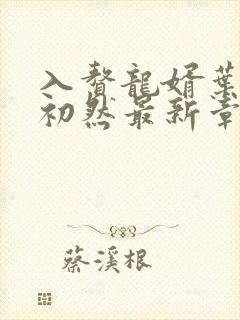 入贅龍婿葉
初然最新章
蔡溪根